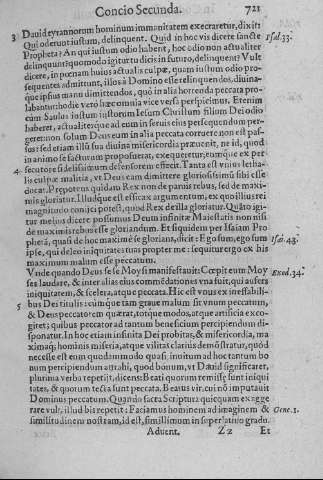 Concio Secunda. 721
3 Dauid tyrannorum hominum immanitatem execraretur, dixit:
Qui oderunt iustum, delinquent. Quid in hoc vis dicere sancte Psal. 33.
Propheta? An qui iustum odio habent, hoc odio non actualiter
delinquunt? quomodo igitur tu dicis in futuro, delinquent? Vult
dicere, in poenam huius actualis culpæ, quam iustum odio pro-
sequentes admittunt, illos à Domino esse relinquendos, diuina-
que ipsius manu dimittendos, quò in alia horrenda peccata pro-
labantur: hodie vero hæc omnia vice versa perspicimus. Etenim
cum Saulus iustum iustorum Iesum Christum filium Dei odio
haberet, actualiterque ad eum in seruis eius persequendum per-
geret: non solum Deus eum in alia peccata corruere non est pas-
sus: sed etiam illū sua diuina misericordia præuenit, ne id, quod
in animo se facturum proposuerat, exequeretur, eumque ex per
4 secutore fidelissimum defensorem effecit. Tanta est vnius letha-
lis culpæ malitia, vt Deus eam dimittere gloriosissimū sibi esse
docat. Potentem quidam Rex non de paruis rebus, sed de maxi-
mis gloriatur. Illudque est efficax argumentum, ex quo illius rei
magnitudo conijci potest, quòd Rex de illa glorietur. Quāto igi-
tur melius dicere possumus Deum infinitæ Maiestatis non nisi
de maximis rebus esse gloriandum. Et siquidem per Isaiam Pro
phetā, quasi de hoc maximè se glorians, dicit: Ego sum, ego sum Isai. 43.
ipse, qui deleo iniquitates tuas propter me: sequitur ergo ex his
maximum malum esse peccatum.
Vnde quando Deus se se Moysi manifestauit: Cœpit eum Moy Exod. 34.
ses laudare, & inter alias eius commēdationes vna fuit, qui aufers
iniquitatem, & scelera, atque peccata. Hic est vnus ex ineffabili-
5 bus Dei titulis: cùmque tam graue malum sit vnum peccatum,
& Deus peccatorem quærat, totque modos, atque artificia exco-
gitet; quibus peccator ad tantum beneficium percipiendum di-
sponatur. In hoc etiam infinita Dei probitas, & misericordia, ma
ximaq; hominis miseria, atque vilitas clarius demōstratur, quòd
necesse est eum quodammodo quasi inuitum ad hoc tantum bo
num percipiendum attrahi, quod bonum, vt Dauid significaret,
plurima verba repetijt, dicens: Beati quorum remissę sunt iniqui
tates, & quorum tecta sunt peccata. Beatus vir, cui nō imputauit
Dominus peccatum. Quando sacra Scriptura quicquam exagge
rare vult, illud bis repetit: Faciamus hominem ad imaginem & Gene. 1.
similitudinem nostram, id est, simillimum in superlatiuo gradu.
Aduent. Zz Et